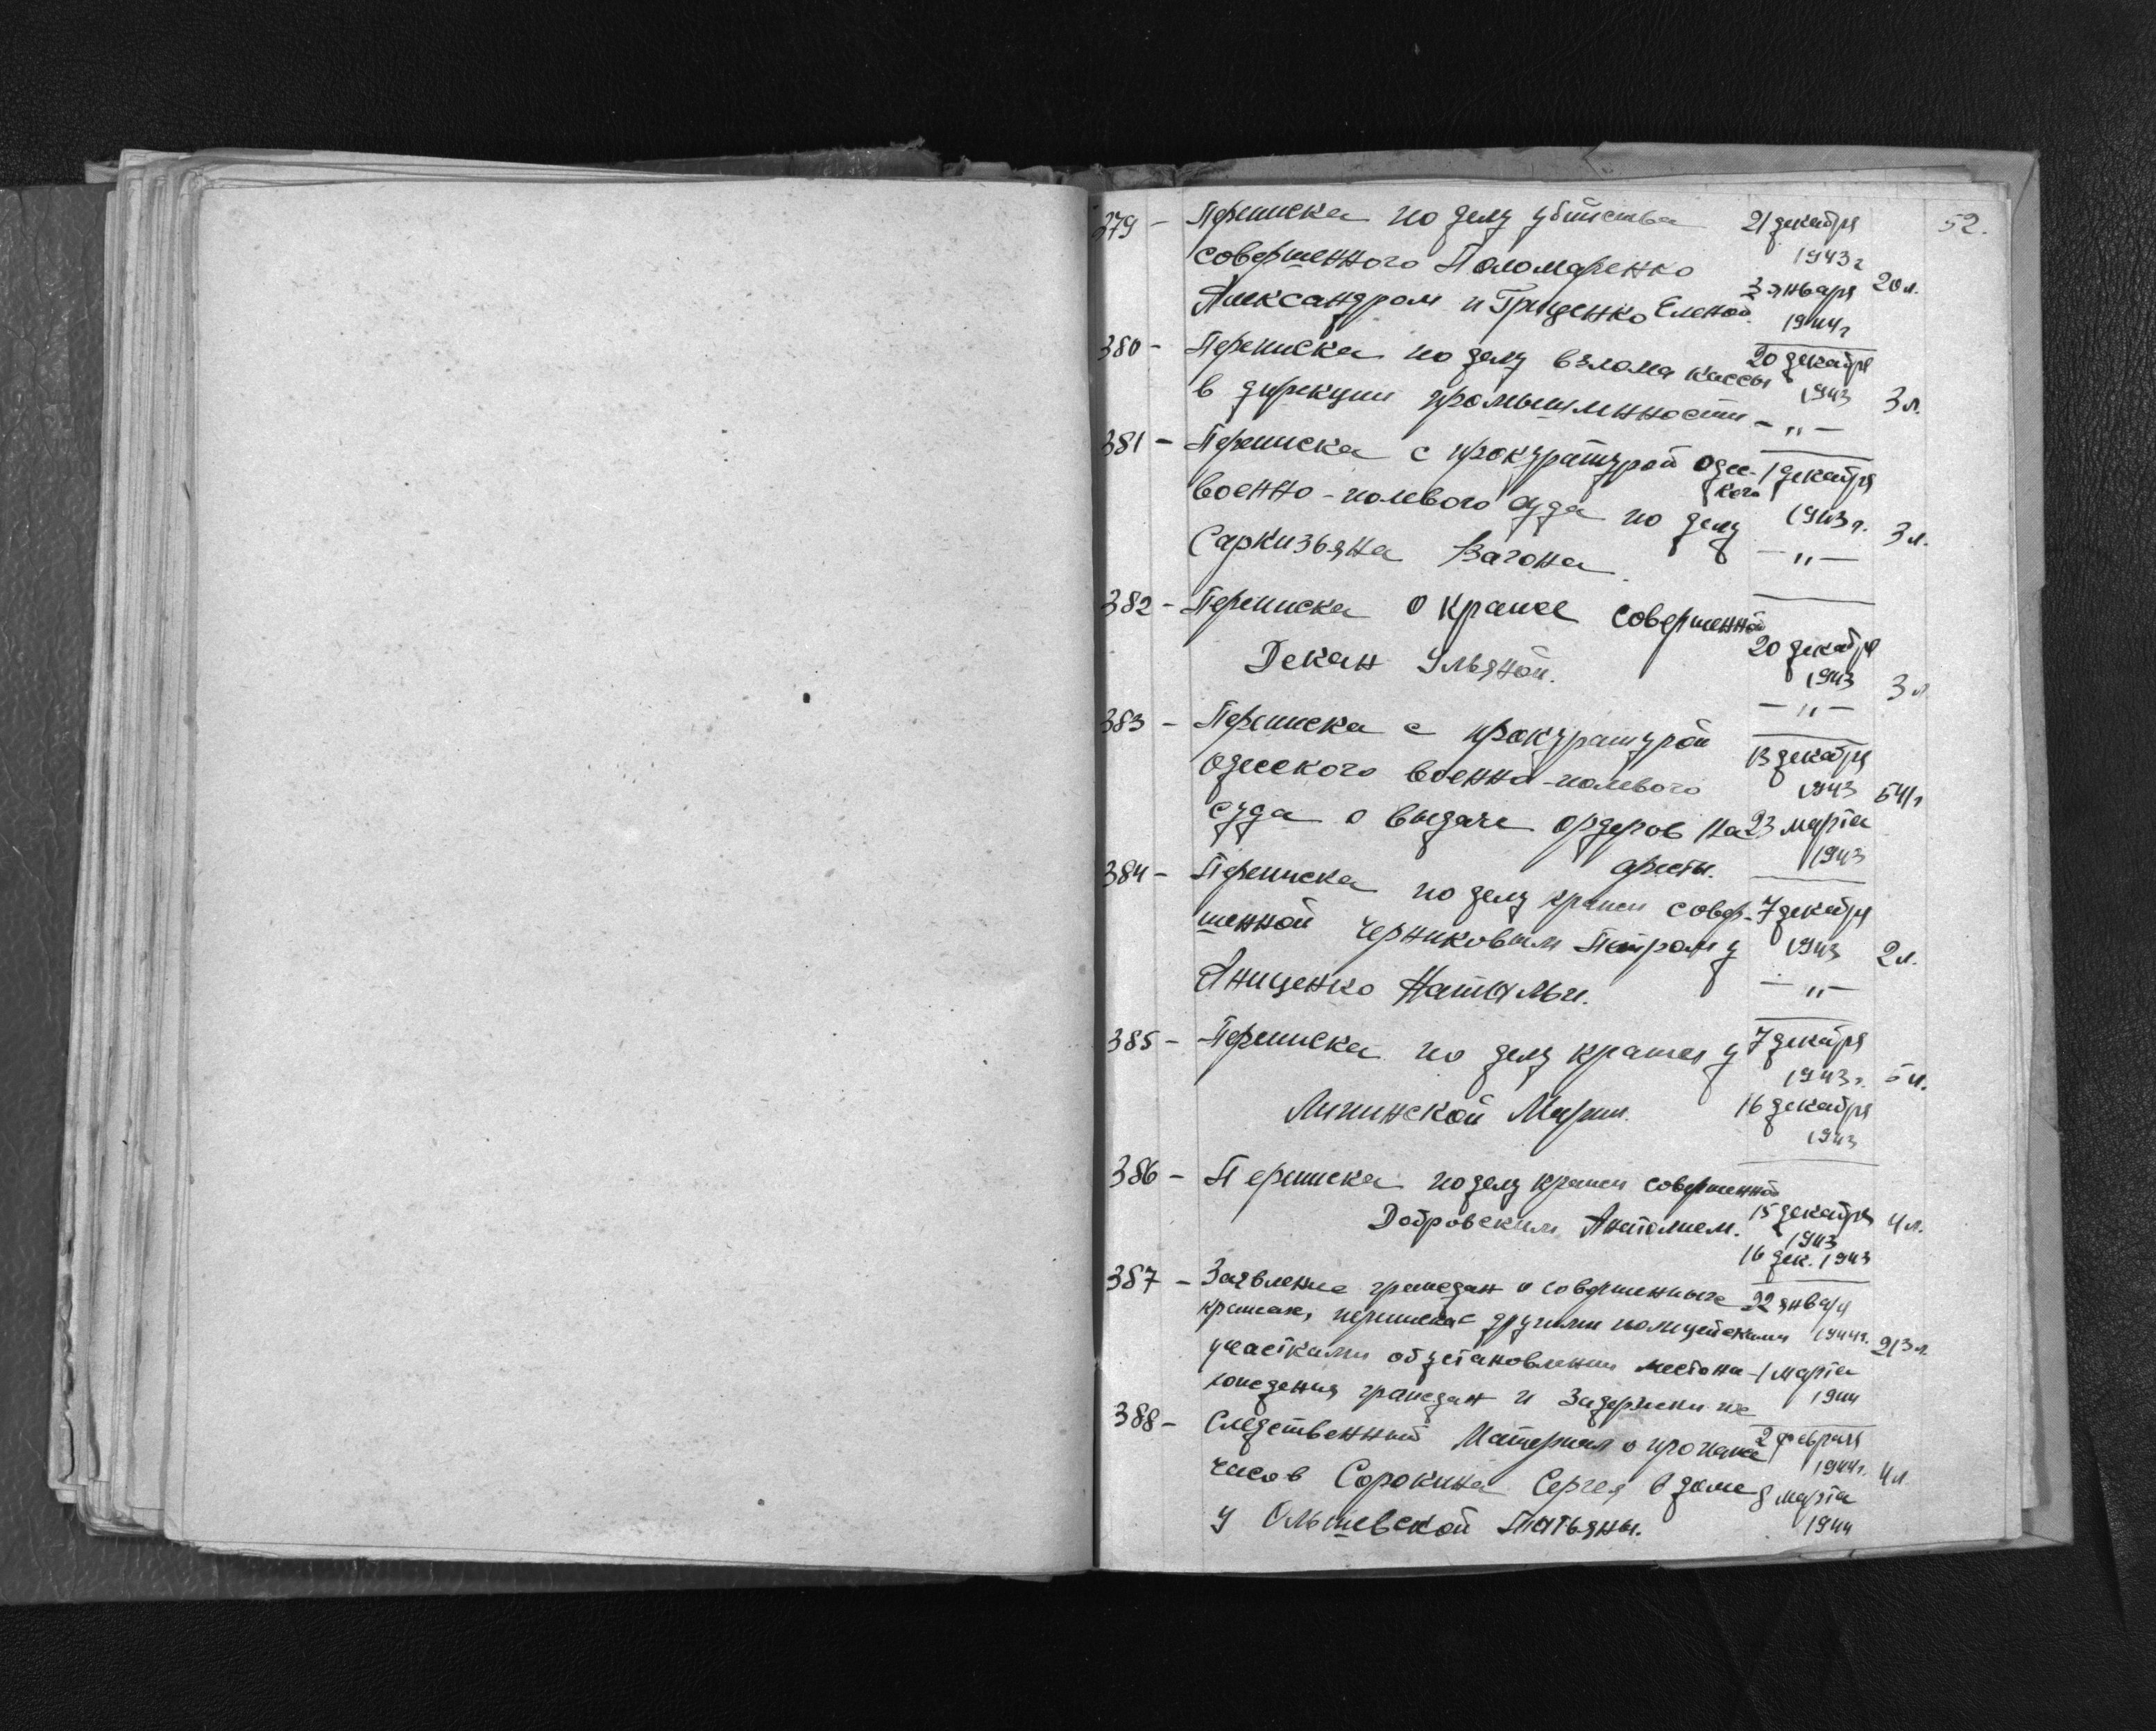 52.
379 - Переписка по делу убийства 21 декабря
совершенного Поломаренко 1943 г
Александром и Грищенко Еленой. 3 января 1944 г 20 л.
380 - Переписка по делу взлома кассы 20 декабря
в дирекции промышленности 1943 - " - 3 л.
381 - Переписка с прокуратурой Одес- 1 декабря
кого
военно-полевого суда по делу 1943 г. 3 л.
Саркизьяна Вагона. - " -
382 - Переписка о краже совершенной
Декан Ульяной. 20 декабря 1943 - " - 3 л
383 - Переписка с прокуратурой 13 декабря
Одесского военно-полевого 1943
суда о выдаче ордеров на 23 марта
аресты. 1943
384 - Переписка по делу кражи совер- 7 декабря
шенной Черниковым Петром у 1943 2 л.
Анищенко Натальи. - " -
385 - Переписка по делу кражи у 7 декабря
1943 г. 5 л.
Липинской Марии. 16 декабря
1943
386 - Переписка по делу кражи совершенной
Добровским Анатолием. 15 декабря 1943 4 л.
16 дек. 1943
387 - Заявление граждан о совершенных 22 января
кражах, переписка с другими полицейскими 1944 г. 213 л.
участками об установлении местона- 1 марта
хождения граждан и задержки их 1944
388 - Следственный материал о пропаже 2 февраля
часов Сорокина Сергея в доме 1944 г. 4 л.
у Ольшевской Татьяны. 8 марта 1944